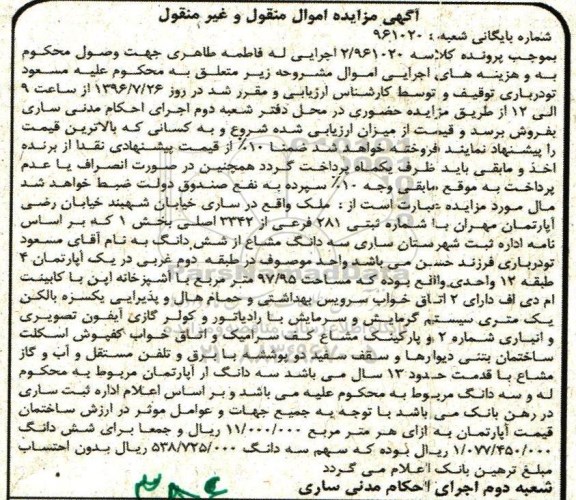 آگهی مزایده اموال منقول و غیر منقول
شماره بایگانی شعبه: ۹۶۱۰۲۰
بموجب پرونده کلاسه ۲/۹۶۱۰۲۰ اجرایی له فاطمه طاهری جهت وصول محکوم
به و هزینه های اجرایی اموال مشروحه زیر متعلق به محکوم علیه مسعود
تودرباری توقیف و توسط کارشناس ارزیابی و مقرر شد در روز ۱۳۹۶/۷/۲۶ از ساعت ۹
الی ۱۲ از طریق مزایده حضوری در محل دفتر شعبه دوم اجرای احکام مدنی ساری
بفروش برسد و قیمت از میزان ارزیابی شده شروع و به کسانی که بالاترین قیمت
را پیشنهاد نمایند فروخته خواهد شد ضمنا ۱۰٪ از قیمت پیشنهادی نقدا از برنده
اخذ و مابقی باید ظرف یکماه پرداخت گردد همچنین در صورت انصراف یا عدم
پرداخت به موقع مابقی وجه ۱۰٪ سپرده به نفع صندوق دولت ضبط خواهد شد
مال مورد مزایده عبارت است از: ملک واقع در ساری خیابان شهبند خیابان رضی
آپارتمان مهران با شماره ثبتی ۲۸۱ فرعی از ۳۳۴۲ اصلی بخش ۱ که بر اساس
نامه اداره ثبت شهرستان ساری سه دانگ مشاع از شش دانگ به نام آقای مسعود
تودرباری فرزند حسن می باشد واحد موصوف در طبقه دوم غربی در یک آپارتمان ۴
طبقه ۱۲ واحدی واقع بوده که مساحت ۹۷/۹۵ متر مربع با آشپزخانه اپن با کابینت
ام دی اف دارای ۲ اتاق خواب سرویس بهداشتی و حمام هال و پذیرایی یکسره بالکن
یک متری سیستم گرمایش و سرمایش با رادیاتور و کولر گازی آیفون تصویری
و انباری شماره ۲ و پارکینگ مشاع کف سرامیک و اتاق خواب کفپوش اسکلت
ساختمان بتنی دیوارها و سقف سفید بوده با برق و تلفن مستقل و آب و گاز
مشاع با قدمت حدود ۱۳ سال می باشد سه دانگ از آپارتمان مربوط به محکوم
له و سه دانگ مربوط به محکوم علیه می باشد و بر اساس اعلام اداره ثبت ساری
در رهن بانک می باشد با توجه به جمیع جهات و عوامل موثر در ارزش ساختمان
قیمت آپارتمان به ازای هر متر مربع ۱۱/۰۰۰/۰۰۰ ریال و جمعا برای شش دانگ
۱/۰۷۷/۴۵۰/۰۰۰ ریال بوده که سهم سه دانگ ۵۳۸/۷۲۵/۰۰۰ ریال بدون احتساب
مبلغ ترهین بانک اعلام می گردد
شعبه دوم اجرای احکام مدنی ساری